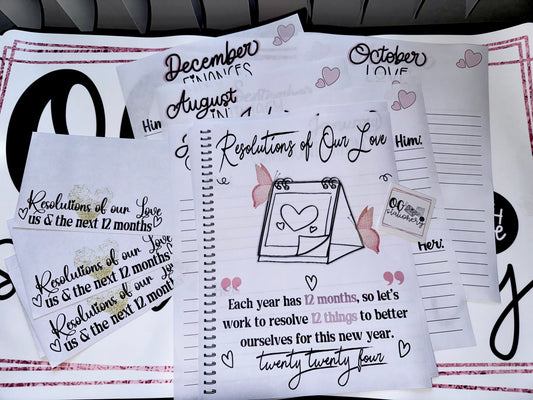 December
FINANCES
October
LOVE
August
Him:
Him:
Her:
Resolutions of Our Love
OG
stationery
Each year has 12 months, so let's
work to resolve 12 things to better
ourselves for this new year.
twenty twenty four
Resolutions of our Love
us & the next 12 months
Resolutions of our Love
us & the next 12 months
Resolutions of our Love
us & the next 12 months